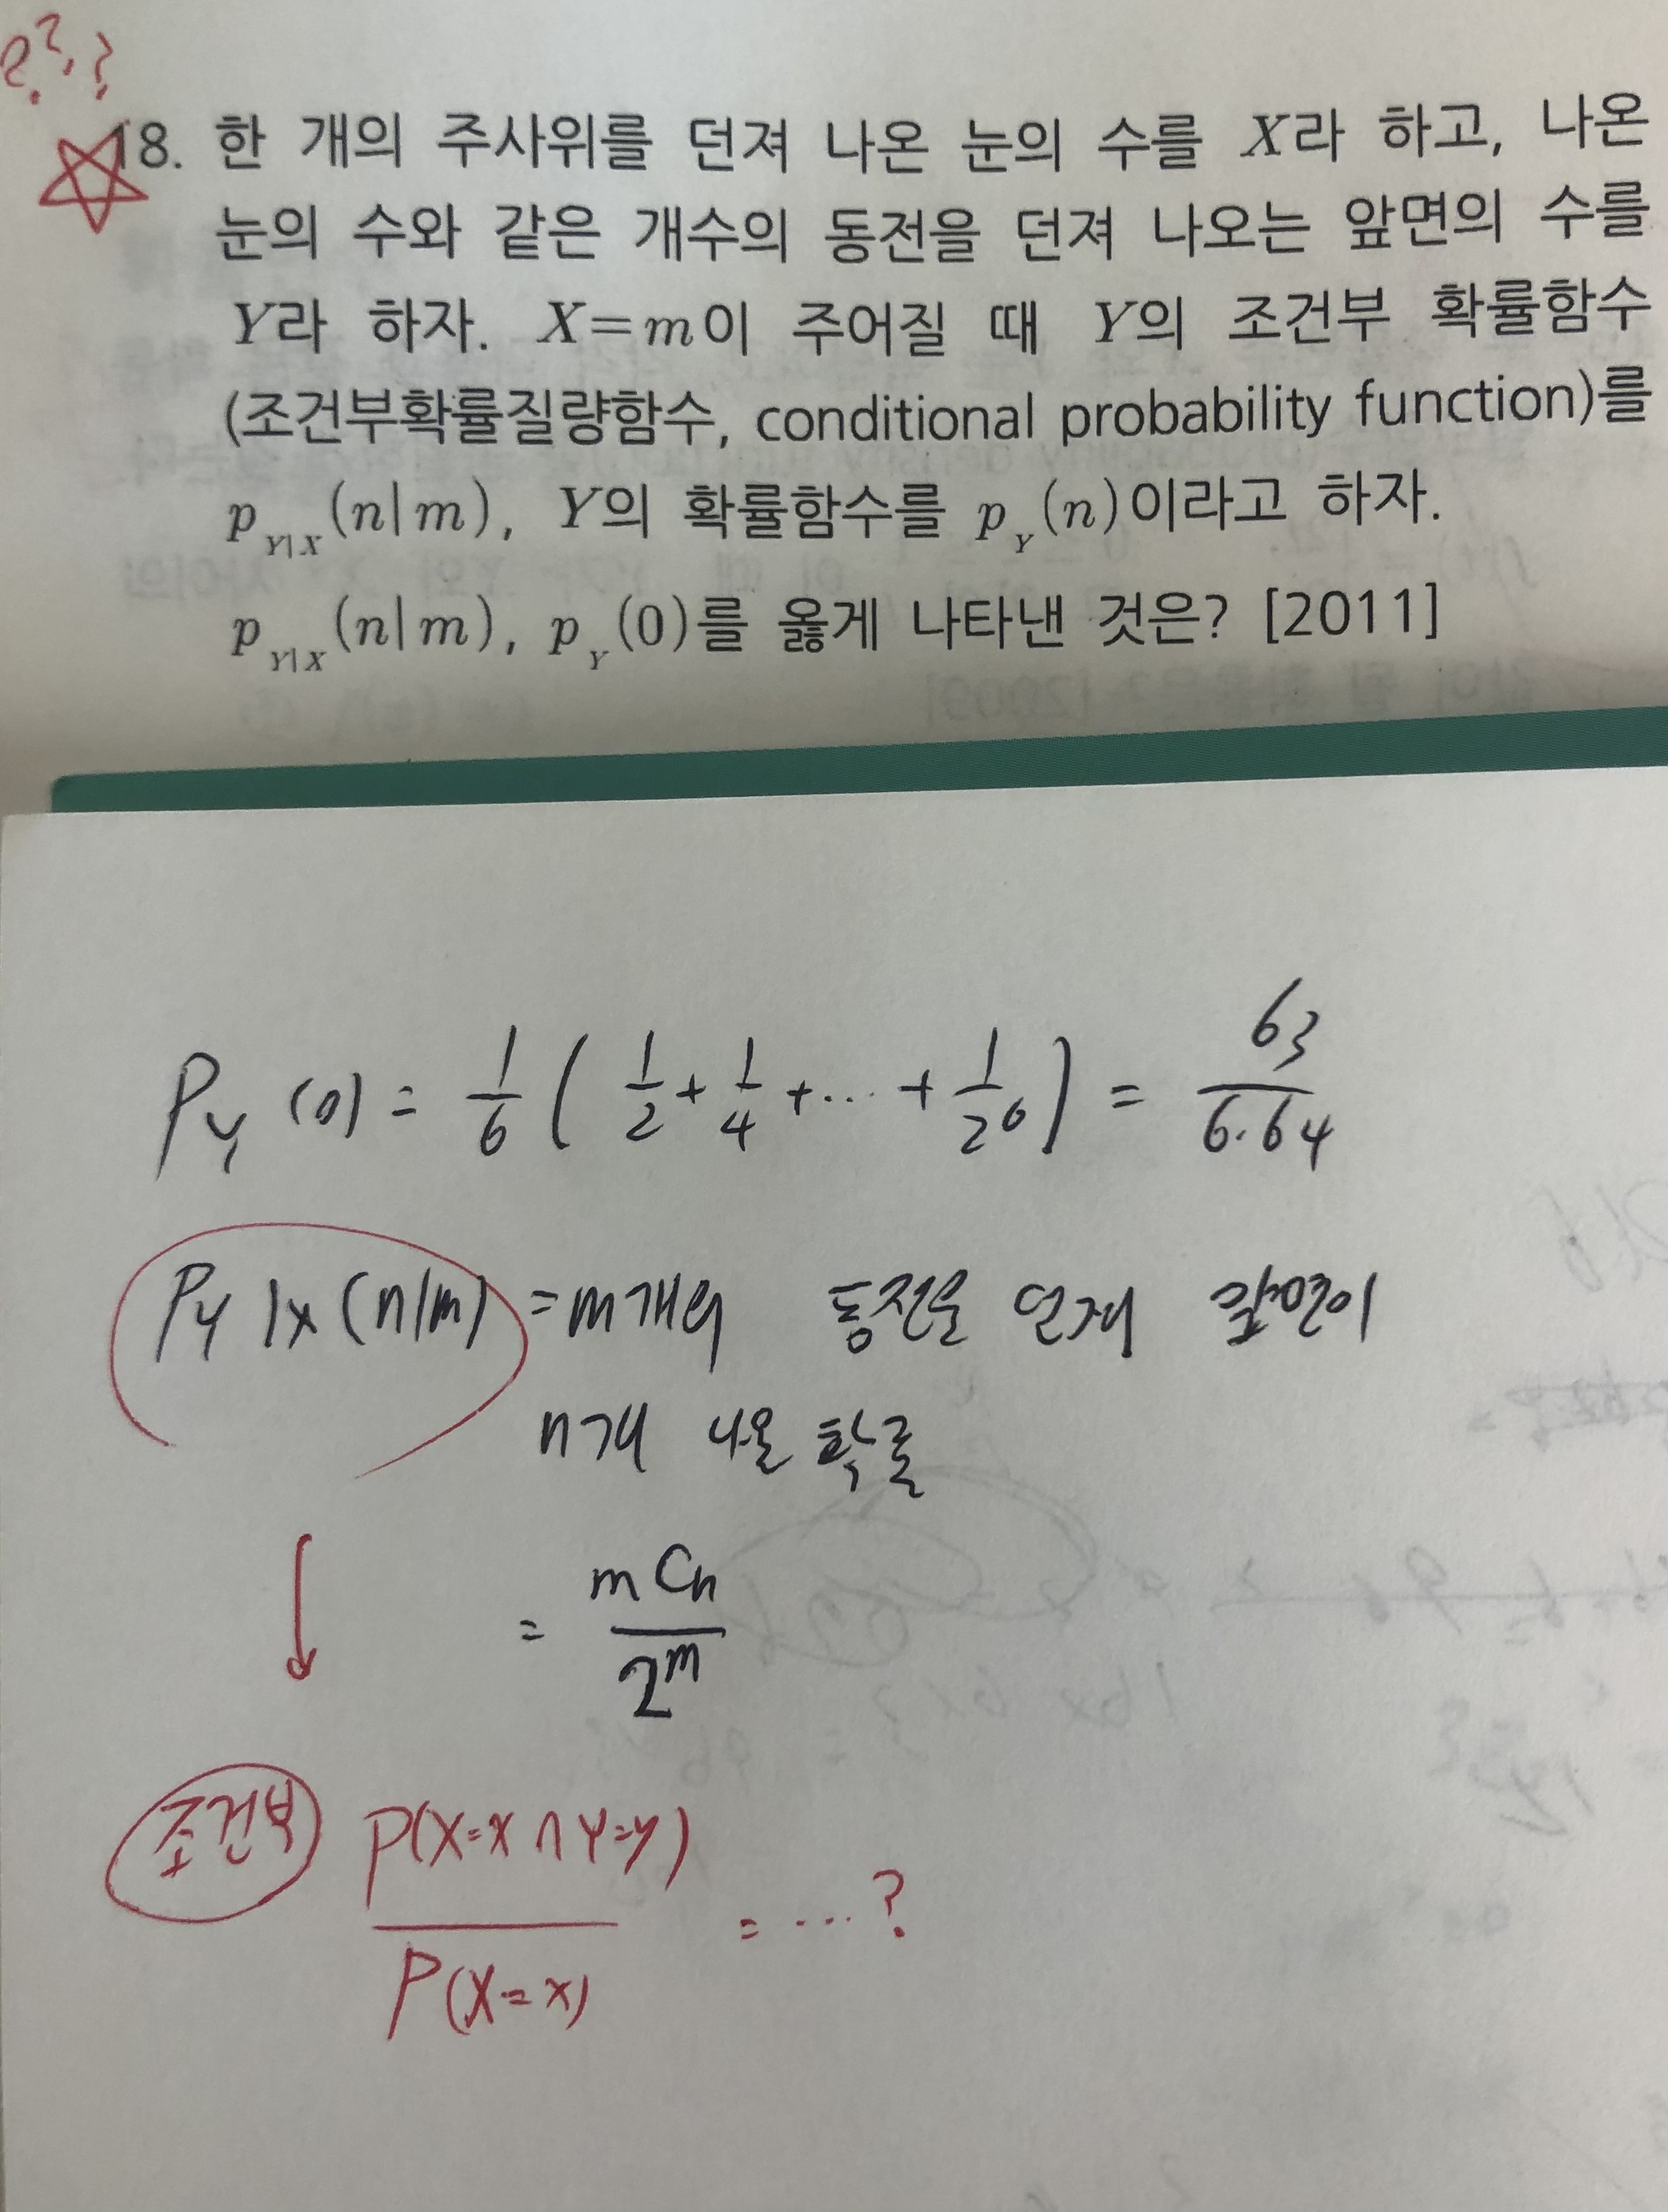 ???
18. 한 개의 주사위를 던져 나온 눈의 수를 X라 하고, 나온
눈의 수와 같은 개수의 동전을 던져 나오는 앞면의 수를
Y라 하자. X=m이 주어질 때 Y의 조건부 확률함수
(조건부확률질량함수, conditional probability function)를
p_{Y|X}(n|m), Y의 확률함수를 p_Y(n)이라고 하자.
p_{Y|X}(n|m), p_Y(0)를 옳게 나타낸 것은? [2011]
P_Y(0) = 1/6 ( 1/2 + 1/4 + ... + 1/2^6 ) = 63/6·64
P_Y|X(n|m) = m개의 동전을 던져 앞면이
n개 나올 확률
= mCn/2^m
조건부 P(X=x∩Y=y)/P(X=x) = ...?